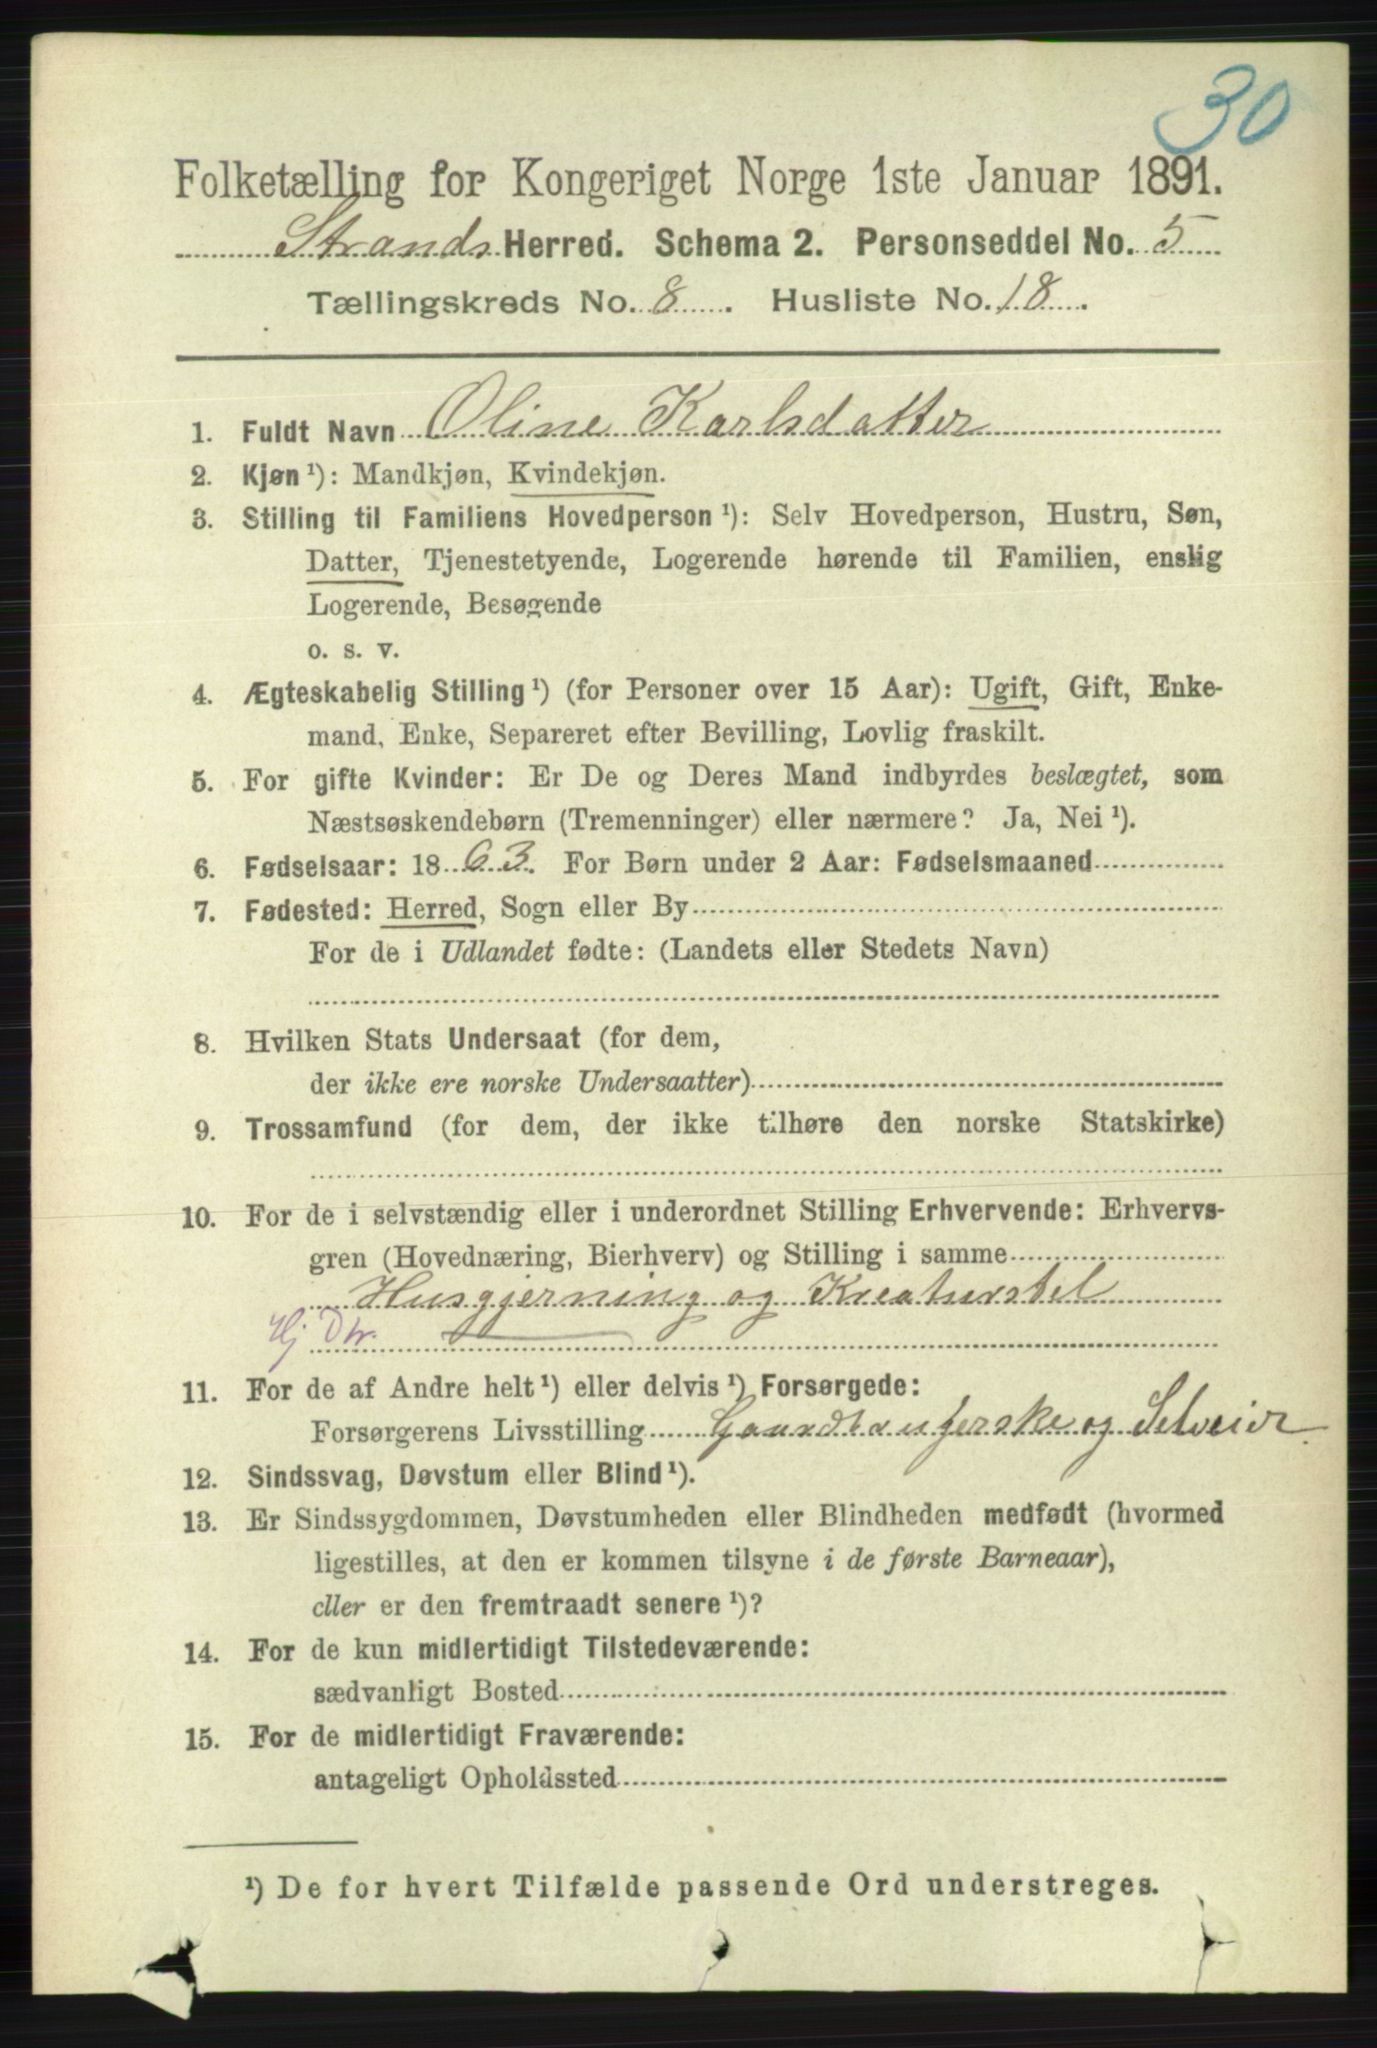 30
Folketælling for Kongeriget Norge 1ste Januar 1891.
Strands Herred. Schema 2. Personseddel No. 5
Tællingskreds No. 8. Husliste No. 18.
1. Fuldt Navn Oline Karlsdatter
2. Kjøn ¹): Mandkjøn, Kvindekjøn.
3. Stilling til Familiens Hovedperson ¹): Selv Hovedperson, Hustru, Søn,
Datter, Tjenestetyende, Logerende hørende til Familien, enslig
Logerende, Besøgende
o. s. v.
4. Ægteskabelig Stilling ¹) (for Personer over 15 Aar): Ugift, Gift, Enke-
mand, Enke, Separeret efter Bevilling, Lovlig fraskilt.
5. For gifte Kvinder: Er De og Deres Mand indbyrdes beslægtet, som
Næstsøskendebørn (Tremenninger) eller nærmere? Ja, Nei ¹).
6. Fødselsaar: 1863. For Børn under 2 Aar: Fødselsmaaned
7. Fødested: Herred, Sogn eller By
For de i Udlandet fødte: (Landets eller Stedets Navn)
8. Hvilken Stats Undersaat (for dem,
der ikke ere norske Undersaatter)
9. Trossamfund (for dem, der ikke tilhøre den norske Statskirke)
10. For de i selvstændig eller i underordnet Stilling Erhvervende: Erhvervs-
gren (Hovednæring, Bierhverv) og Stilling i samme
Husgjerning og Kreaturstel
Hj Dtr.
11. For de af Andre helt ¹) eller delvis ¹) Forsørgede:
Forsørgerens Livsstilling og Selveier
12. Sindssvag, Døvstum eller Blind ¹).
13. Er Sindssygdommen, Døvstumheden eller Blindheden medfødt (hvormed
ligestilles, at den er kommen tilsyne i de første Barneaar),
eller er den fremtraadt senere ¹)?
14. For de kun midlertidigt Tilstedeværende:
sædvanligt Bosted
15. For de midlertidigt Fraværende:
antageligt Opholdssted
¹) De for hvert Tilfælde passende Ord understreges.